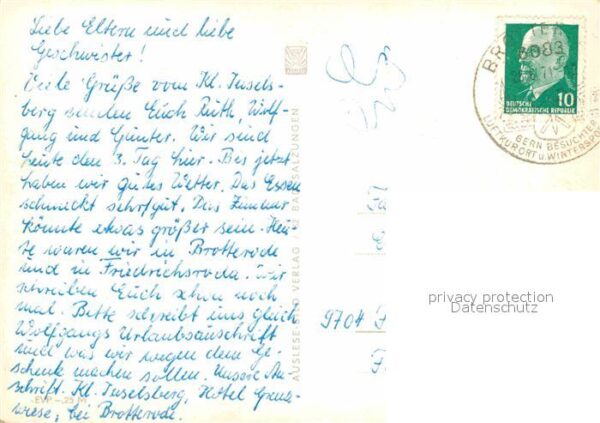 Liebe Eltern und liebe
Geschwister!
Viele Grüße vom Kl. Insels-
berg senden Euch Ruth, Wolf-
gang und Günter. Wir sind
heute den 3. Tag hier. Bis jetzt
haben wir gutes Wetter. Das Essen
schmeckt sehr gut. Das Zimmer
könnte etwas größer sein. Heu-
te waren wir in Brotterode
und in Friedrichsroda. Wir
schreiben Euch schon noch
mal. Bitte schreibt uns gleich
Wolfgangs Urlaubsanschrift
und was wir wegen dem Ge-
schenk machen sollen. Unsere An-
schrift. Kl. Inselsberg, Hotel Grenz-
wiese, bei Brotterode.
EVP -,25 M
AUSLESE BILD VERLAG BAD SALZUNGEN
DEUTSCHE
DEMOKRATISCHE REPUBLIK
10
6083
GERN BESUCHTER
LUFTKURORT u. WINTERSPO
9704
privacy protection
Datenschutz